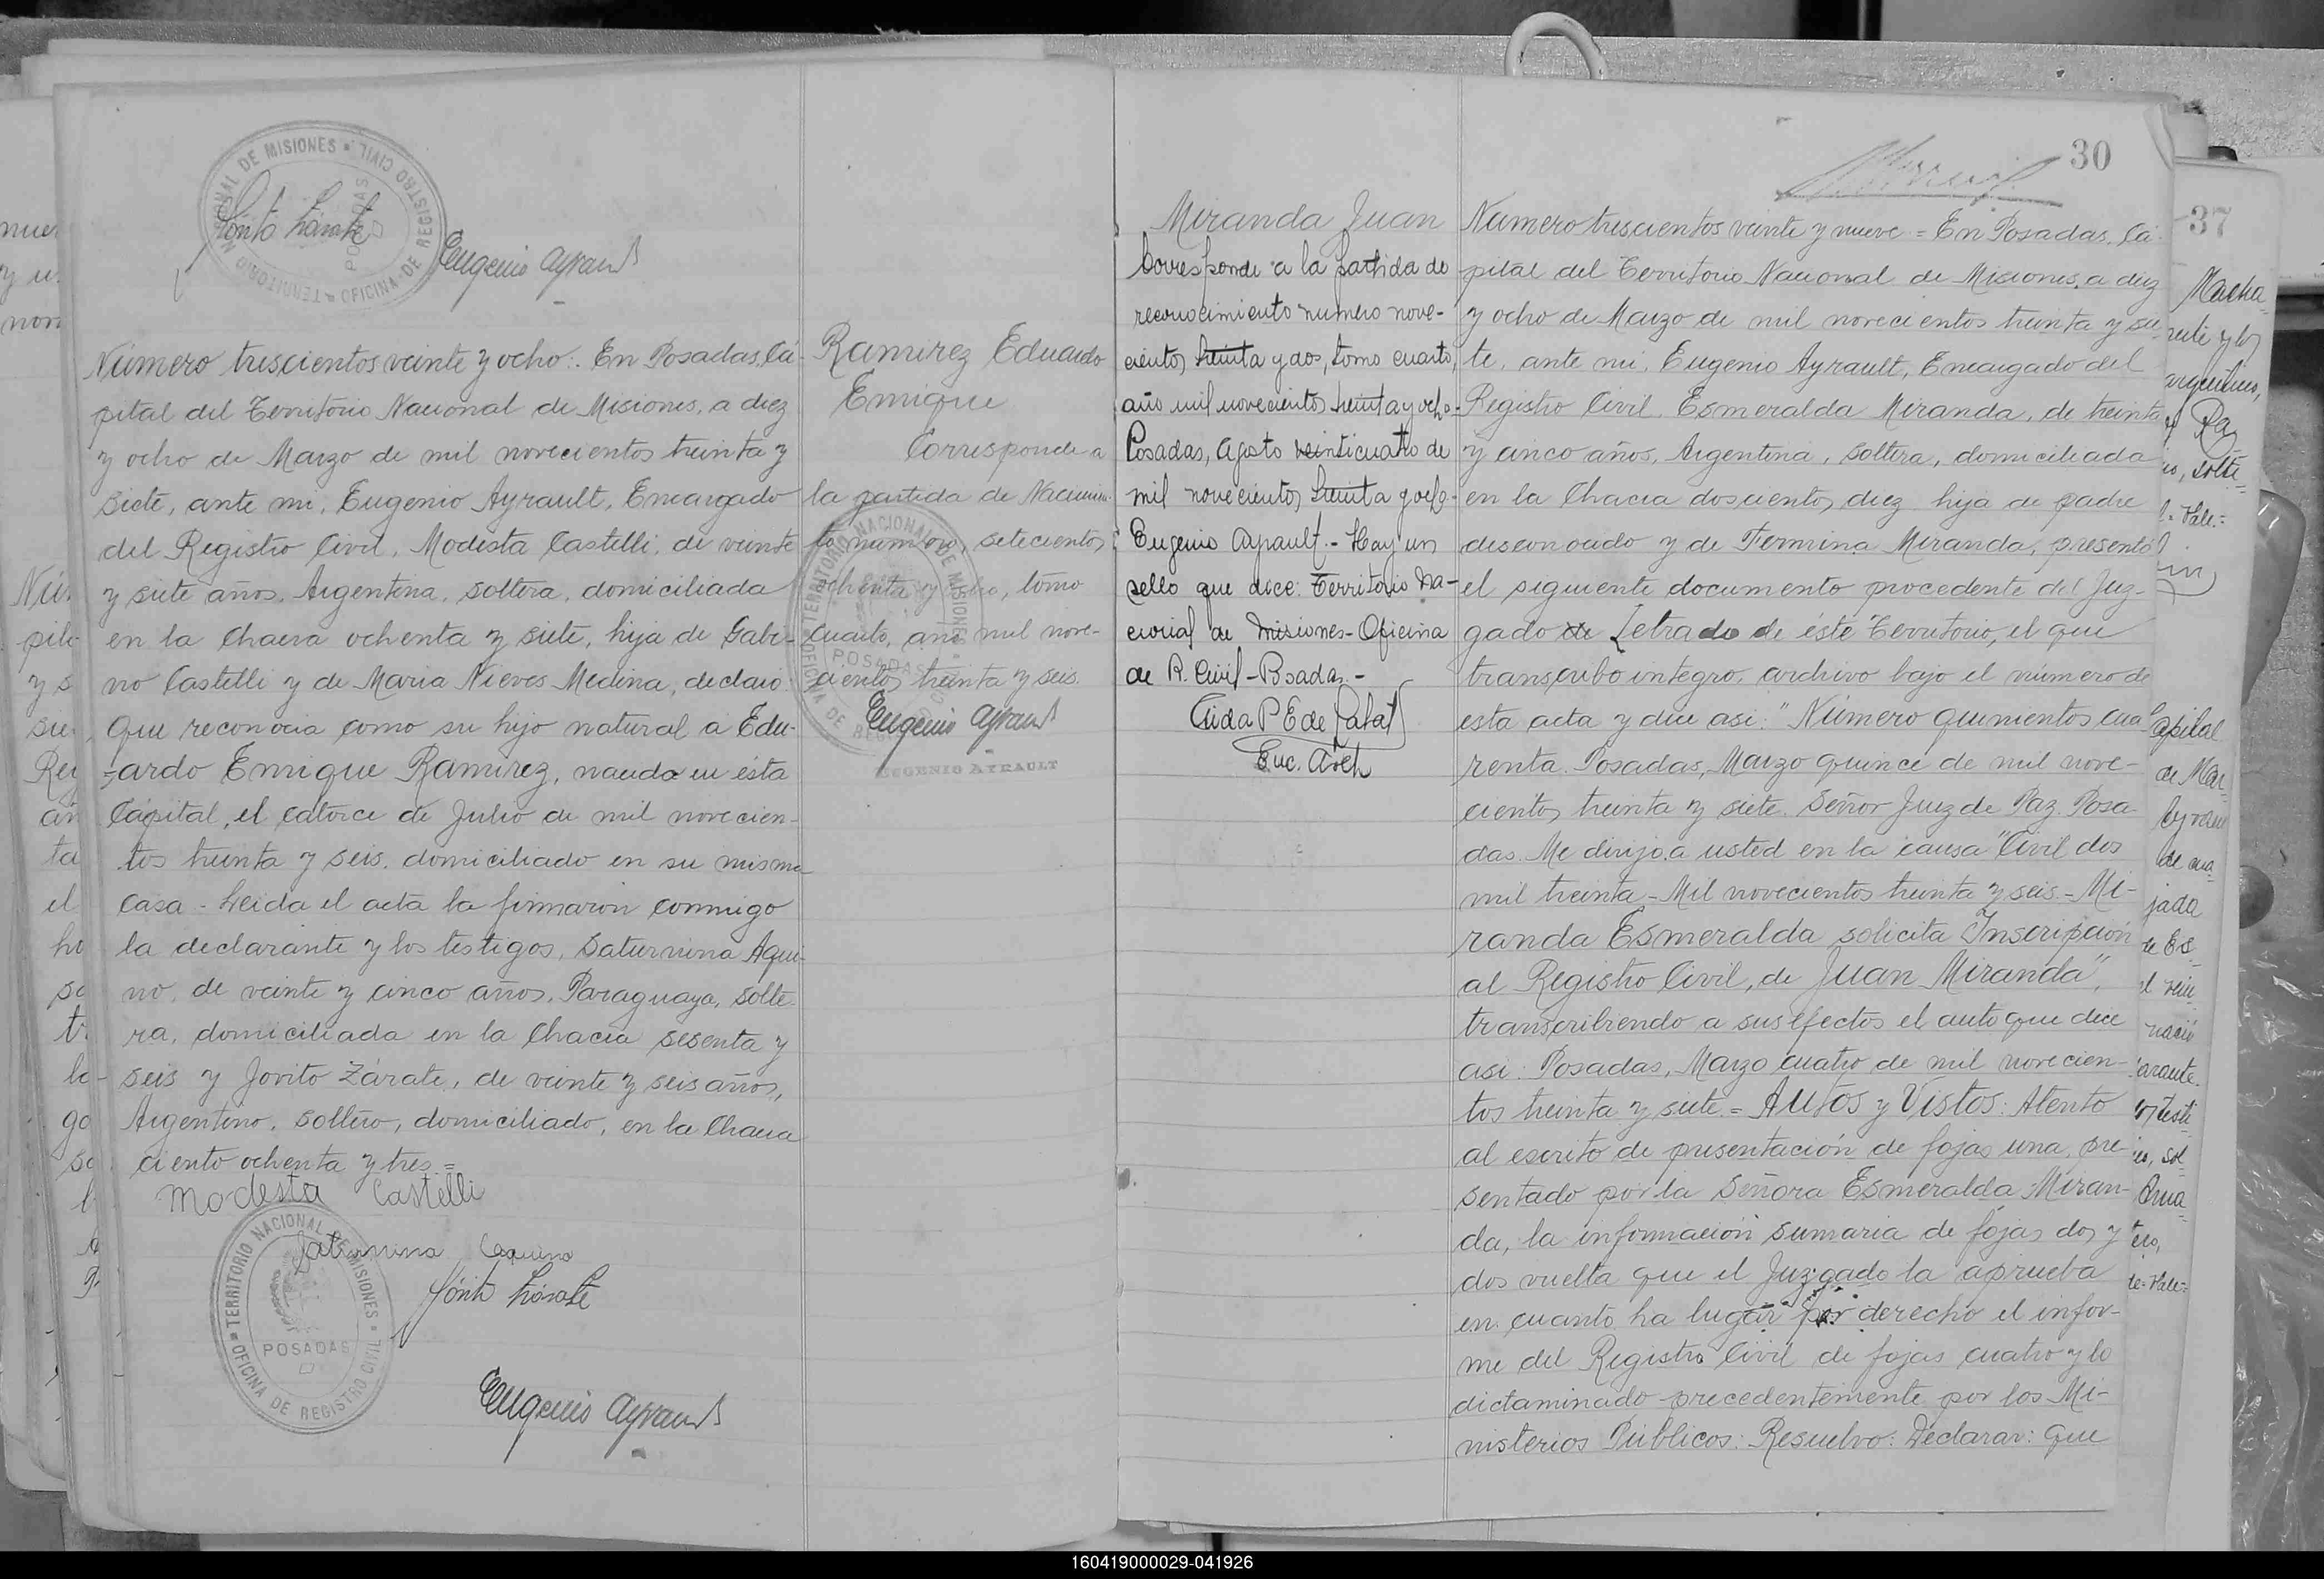 TERRITORIO NACIONAL DE MISIONES
OFICINA DE REGISTRO CIVIL
POSADAS
Eugenio Ayrault
Número trescientos veinte y ocho: En Posadas, Ca-
pital del Territorio Nacional de Misiones, a diez
y ocho de Marzo de mil novecientos treinta y
siete, ante mi, Eugenio Ayrault, Encargado
del Registro Civil, Modesta Castelli, de veinte
y siete años, Argentina, soltera, domiciliada
en la Chacra ochenta y siete, hija de Gabi-
no Castelli y de Maria Nieves Medina, declaró:
que reconocia como su hijo natural a Edu-
ardo Enrique Ramirez, nacido en ésta
Cápital, el catorce de Julio de mil novecien-
tos treinta y seis, domiciliado en su misma
casa - Leida el acta la firmaron conmigo
la declarante y los testigos, Saturnina Aqui-
no, de veinte y cinco años, Paraguaya, solte-
ra, domiciliada en la Chacra sesenta y
seis y Jovito Zárate, de veinte y seis años,
Argentino, soltero, domiciliado, en la Chacra
ciento ochenta y tres =
Modesta Castelli
Saturnina Aquino
Jovito Zárate
TERRITORIO NACIONAL DE MISIONES
OFICINA DE REGISTRO CIVIL
POSADAS
Eugenio Ayrault
Ramirez Eduardo
Enrique
Corresponde a
la partida de Nacimien-
to número, setecientos
ochenta y ocho, tomo
cuarto, año mil nove-
cientos treinta y seis.
Eugenio Ayrault
EUGENIO AYRAULT
30
Miranda Juan
Corresponde a la partida de
reconocimiento numero nove-
cientos treinta y dos, tomo cuarto,
año mil novecientos treinta y ocho-
Posadas, Agosto veinticuatro de
mil novecientos treinta y ocho-
Eugenio Ayrault.- Hay un
sello que dice: Territorio Na-
cional de Misiones-Oficina
de R. Civil-Posadas.-
Enc. Arch
Número trescientos veinte y nueve = En Posadas, Ca-
pital del Territorio Nacional de Misiones, a diez
y ocho de Marzo de mil novecientos treinta y sie-
te, ante mi, Eugenio Ayrault, Encargado del
Registro Civil, Esmeralda Miranda, de treinta
y cinco años, Argentina, soltera, domiciliada
en la Chacra doscientos diez hija de padre
desconocido y de Fermina Miranda, presentó
el siguiente documento procedente del Juz-
gado de Letrado de éste Territorio, el que
transcribo integro, archivo bajo el número de
esta acta y dice asi: "Número quinientos cua-
renta. Posadas, Marzo quince de mil nove-
cientos treinta y siete. Señor Juez de Paz. Posa-
das. Me dirijo a usted en la causa "Civil dos
mil treinta - Mil novecientos treinta y seis - Mi-
randa Esmeralda solicita Inscripción
al Registro Civil, de Juan Miranda",
transcribiendo a sus efectos el auto que dice
asi: Posadas, Marzo cuatro de mil novecien-
tos treinta y siete = Autos y Vistos: Atento
al escrito de presentación de fojas una, pre-
sentado por la Señora Esmeralda Miran-
da, la información sumaria de fojas dos y
dos vuelta que el Juzgado la aprueba
en cuanto ha lugar por derecho el infor-
me del Registro Civil de fojas cuatro y lo
dictaminado precedentemente por los Mi-
nisterios Públicos: Resuelvo: Declarar: que
37
160419000029-041926